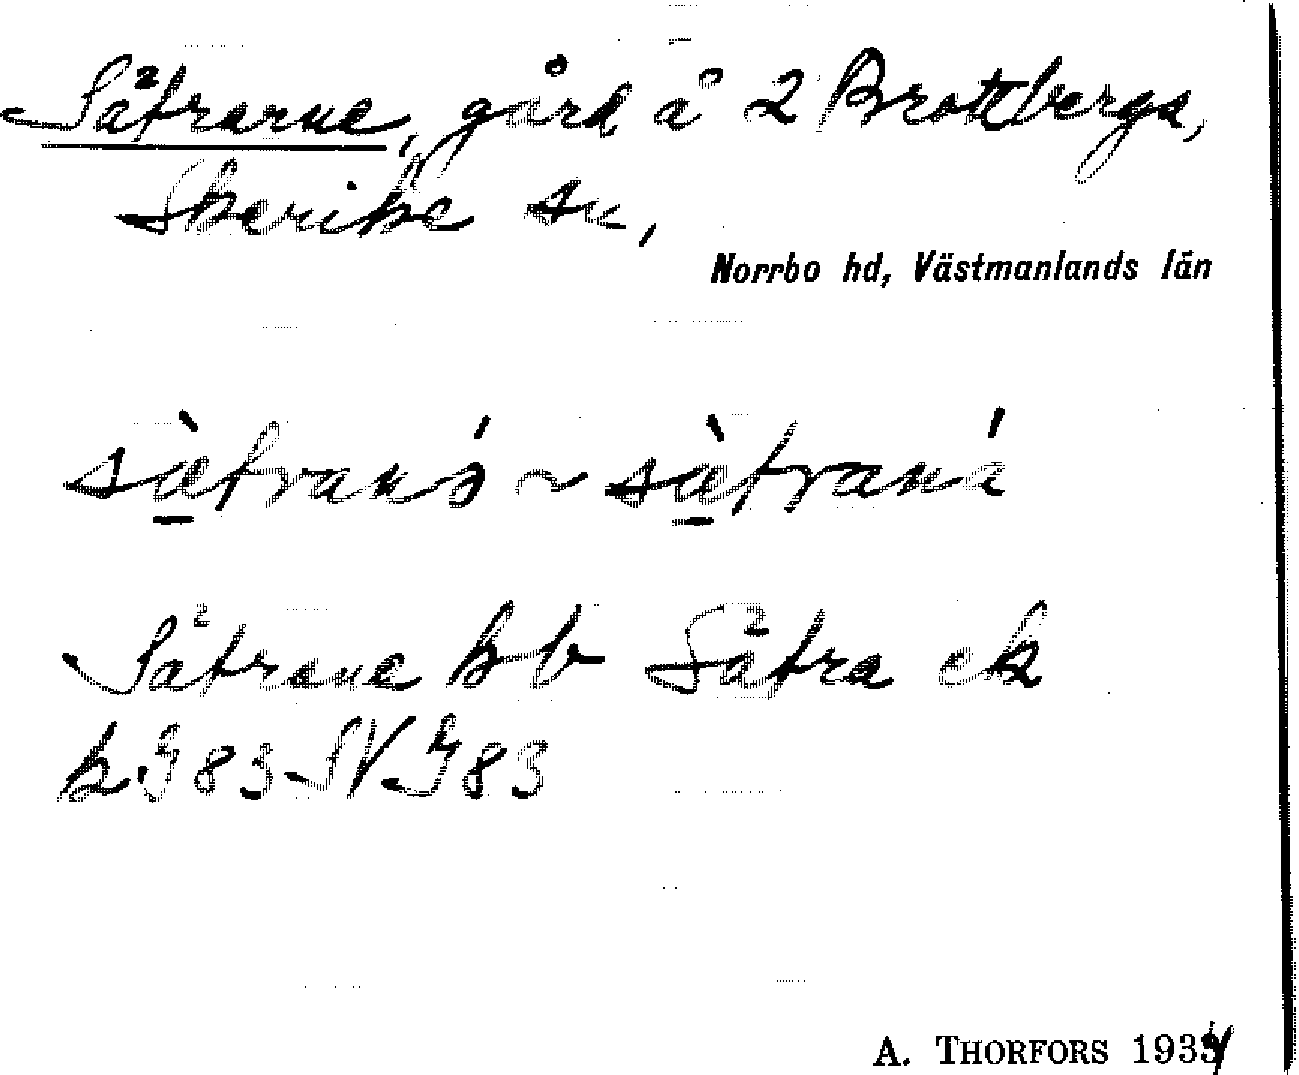 Sätrarne, gård å 2 Brottberga,
Skerike sn,
Norrbo hd, Västmanlands län
sä̀tranə́ ~ sä̀traná
Sätrane kb Sätra ek
k J 83 SV J 83
A. THORFORS 1934